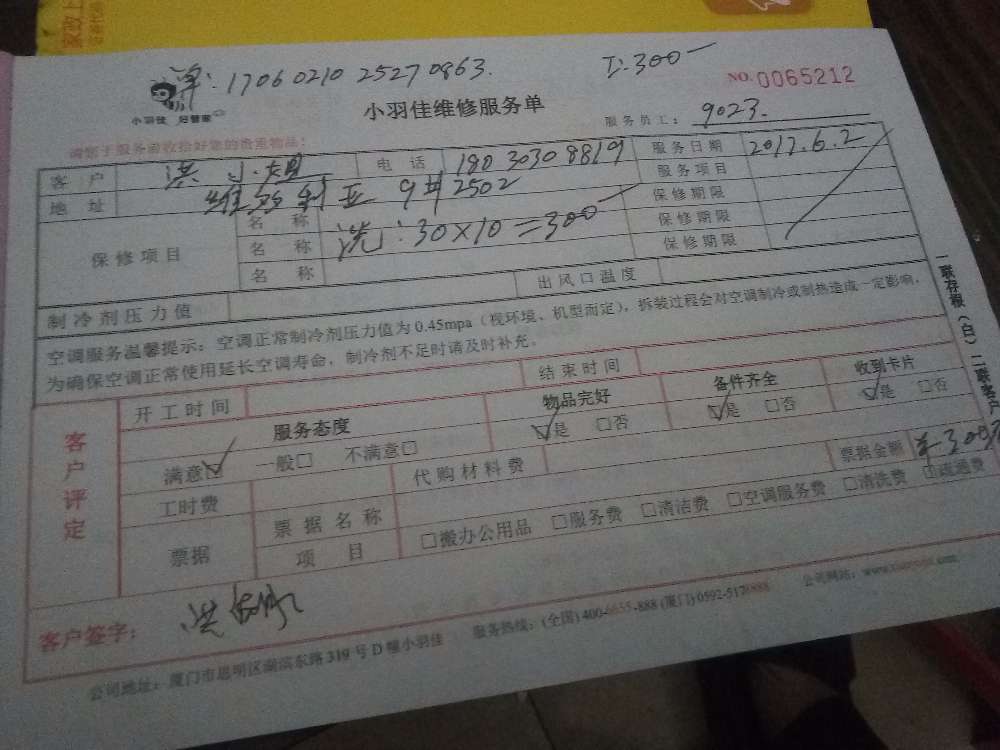 家政上
单:1706021025270863.
工:300-
NO.0065212
小羽佳 好管家
小羽佳维修服务单
服务员工: 9023.
请您于服务前收拾好您的贵重物品:
客户 洪小姐 电话 18030308819 服务日期 2017.6.2
地址 维多利亚 9#2502 服务项目
保修项目 名称 保修期限
名称 洗:30×10=300- 保修期限
名称 保修期限
制冷剂压力值 出风口温度
空调服务温馨提示:空调正常制冷剂压力值为0.45mpa(视环境、机型而定),拆装过程会对空调制冷或制热造成一定影响,
为确保空调正常使用延长空调寿命,制冷剂不足时请及时补充。
一联存根(白)二联客户
客户评定
开工时间 结束时间
服务态度 物品完好 备件齐全 收到卡片
满意☑ 一般□ 不满意□ ☑是 □否 ☑是 □否 ☑是 □否
工时费 代购材料费 票据金额 ¥300元
票据 票据名称
项目 □搬办公用品 □服务费 □清洁费 □空调服务费 □清洗费 □疏通费
客户签字: 洪
公司地址:厦门市思明区湖滨东路319号D幢小羽佳 服务热线:(全国)400-6655-888(厦门)0592-5170888 公司网站:www.